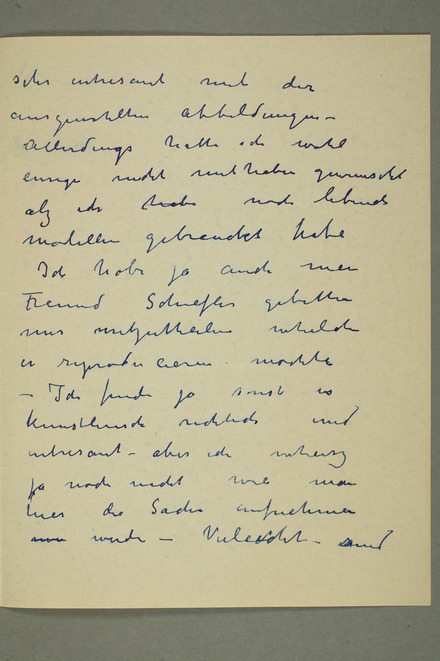 sehr intresant mit der
ausgewählten Abbildungen –
Allerdings hatte ich wohl
einige nicht mit haben gewünscht
als ich habe nach lebende
modellen gebraucht habe
Ich habe ja auch mein
Freund Schiefler gebetten
mir mitzutheilen welche
er reproducieren möchte
– Ich finde ja sonst es
künstlerisch und
intresant – aber ich
ja noch nicht wie man
hier die Sache aufnehmen
wurde – Vieleicht – sind